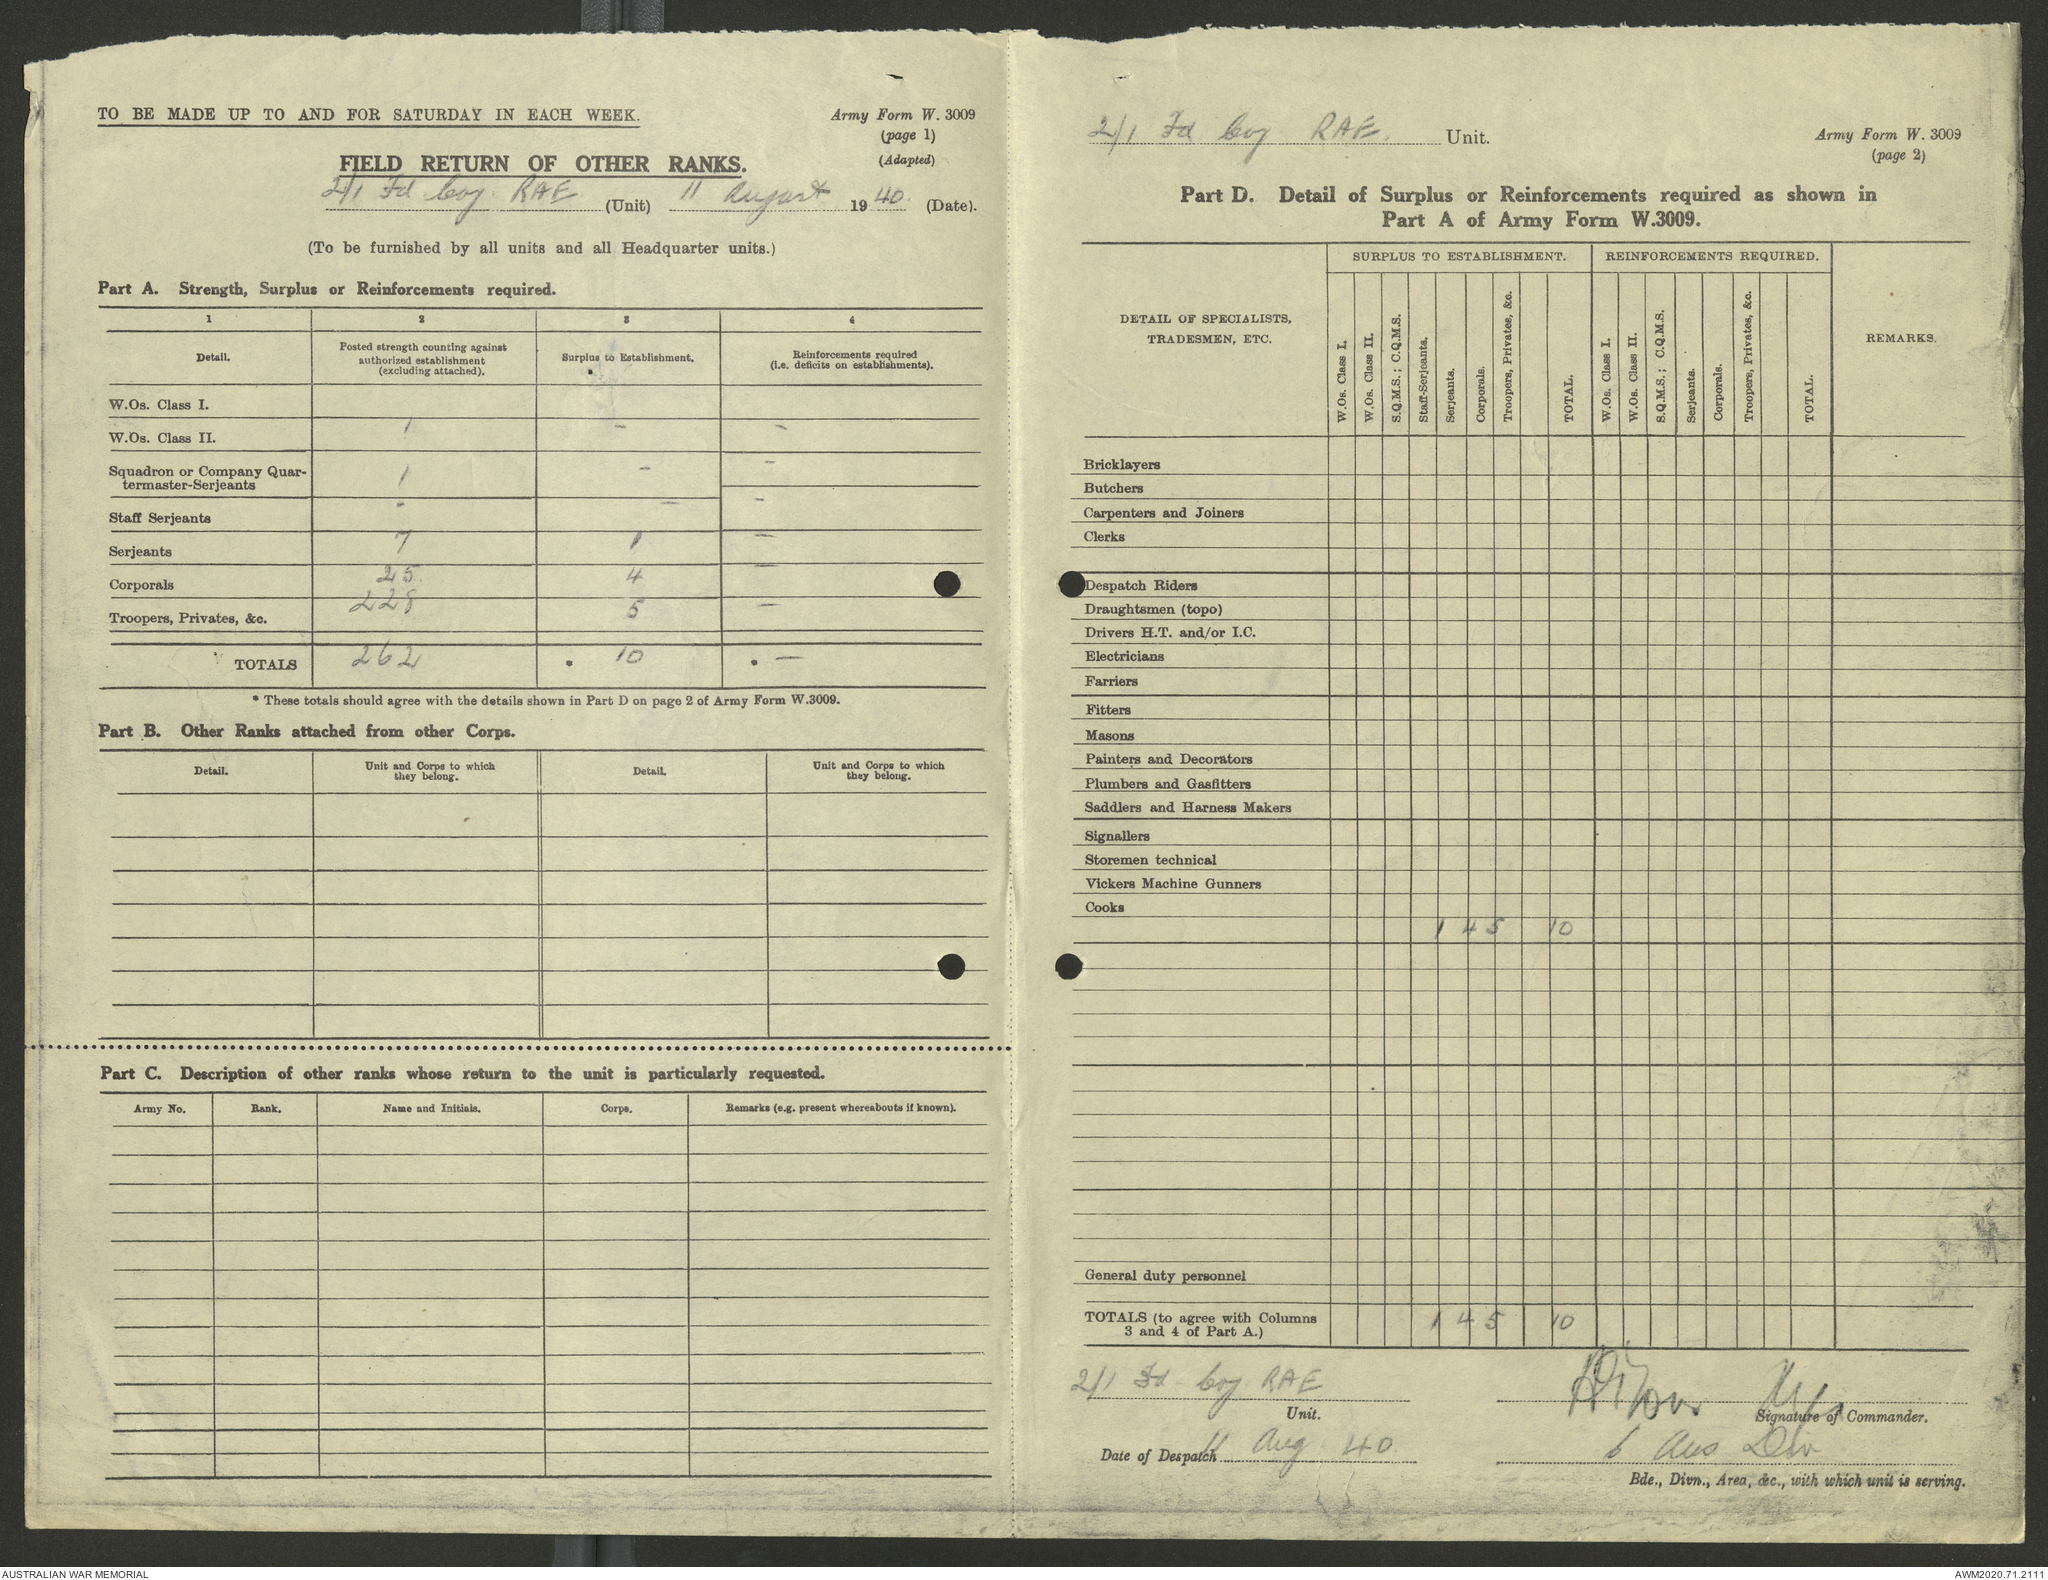 TO BE MADE UP TO AND FOR SATURDAY IN EACH WEEK.
Army Form W. 3009
(page 1)
(Adapted)
FIELD RETURN OF OTHER RANKS.
2/1 Fd Coy RAE (Unit) 11 August 1940. (Date).
(To be furnished by all units and all Headquarter units.)
Part A. Strength, Surplus or Reinforcements required.
1 2 3 4
Detail. Posted strength counting against authorized establishment (excluding attached). Surplus to Establishment. Reinforcements required (i.e. deficits on establishments).
W.Os. Class I.
W.Os. Class II. 1 - -
Squadron or Company Quartermaster-Serjeants 1 - -
Staff Serjeants - - -
Serjeants 7 1 -
Corporals 25 4 -
Troopers, Privates, &c. 228 5 -
TOTALS 262 * 10 * -
* These totals should agree with the details shown in Part D on page 2 of Army Form W.3009.
Part B. Other Ranks attached from other Corps.
Detail. Unit and Corps to which they belong. Detail. Unit and Corps to which they belong.
Part C. Description of other ranks whose return to the unit is particularly requested.
Army No. Rank. Name and Initials. Corps. Remarks (e.g. present whereabouts if known).
2/1 Fd Coy RAE. Unit.
Army Form W. 3009
(page 2)
Part D. Detail of Surplus or Reinforcements required as shown in
Part A of Army Form W.3009.
DETAIL OF SPECIALISTS, TRADESMEN, ETC.
SURPLUS TO ESTABLISHMENT. REINFORCEMENTS REQUIRED.
W.Os. Class I. W.Os. Class II. S.Q.M.S.; C.Q.M.S. Staff-Serjeants. Serjeants. Corporals. Troopers, Privates, &c. TOTAL.
W.Os. Class I. W.Os. Class II. S.Q.M.S.; C.Q.M.S. Serjeants. Corporals. Troopers, Privates, &c. TOTAL.
REMARKS.
Bricklayers
Butchers
Carpenters and Joiners
Clerks
Despatch Riders
Draughtsmen (topo)
Drivers H.T. and/or I.C.
Electricians
Farriers
Fitters
Masons
Painters and Decorators
Plumbers and Gasfitters
Saddlers and Harness Makers
Signallers
Storemen technical
Vickers Machine Gunners
Cooks
1 4 5 10
General duty personnel
TOTALS (to agree with Columns
3 and 4 of Part A.) 1 4 5 10
2/1 Fd Coy RAE
Unit.
Signature of Commander.
Date of Despatch 11 Aug 40
6 Aus Div
Bde., Divn., Area, &c., with which unit is serving.
AUSTRALIAN WAR MEMORIAL
AWM2020.71.2111